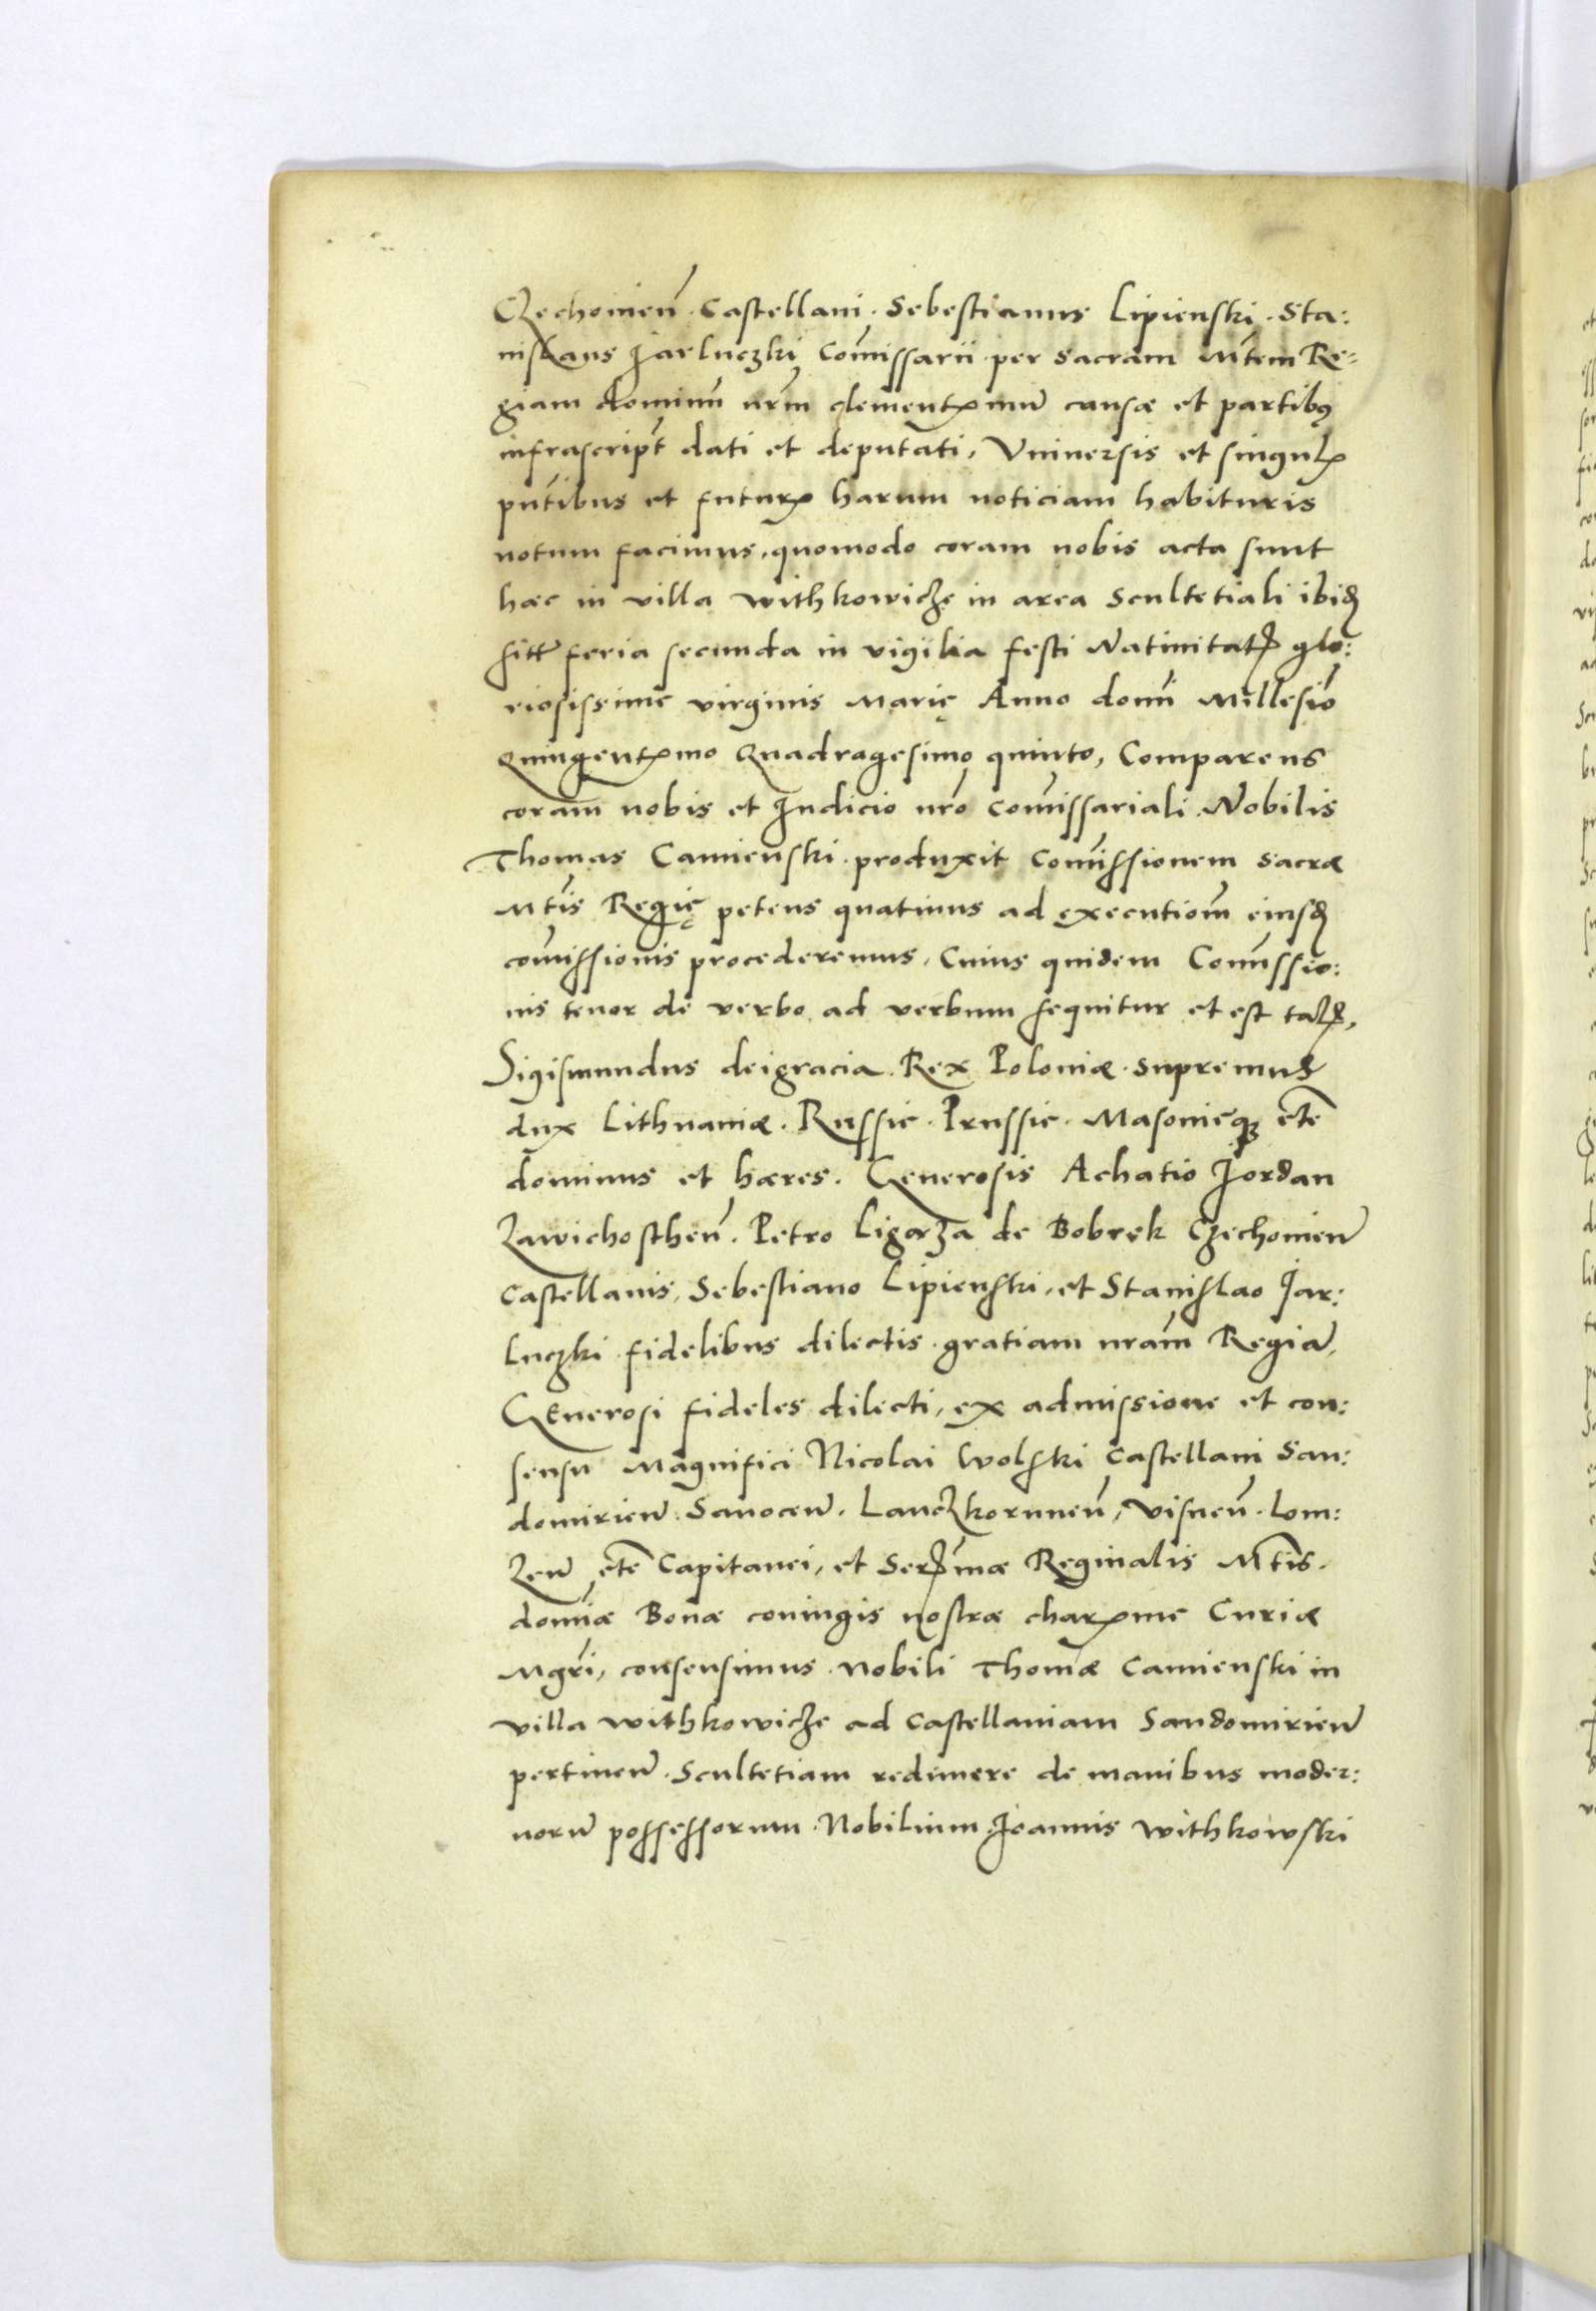 Czechouien̄. Castellani. Sebestianus Lipienski. Sta:
nislaus Jarluczki Com̄issarii per sacram Mt̄em Re=
giam dominū nr̄m clementꝭimū causæ et partibꝯ
infrascript̄ dati et deputati, Vniuersis et singulꝭ
pn̄tibus et futurꝭ harum noticiam habituris
notum facimus, quomodo coram nobis acta sunt
hæc in villa withkowicze in area Scultetiali ibiđ
sitt̄ feria secunda in vigilia festi Natiuitatꝭ glo:
riosissime virginis Marię Anno domī Millesiō
Quingentꝭimo Quadragesimo quinto, Comparens
coram nobis et Judicio nr̄o com̄issariali. Nobilis
Thomas Camienski. produxit com̄issionem sacræ
Mt̄is Regię petens quatinus ad executiom̄ eiusđ
com̄issionis procederemus, Cuius quidem Com̄issio:
nis tenor de verbo ad verbum sequitur et est talꝭ,
Sigismundus dei gracia. Rex Poloniæ. supremus
dux Lithuaniæ. Russie. Prussie. Masouieqꝫ etc̄
dominus et hæres. Generosis Achatio Jordan
Zawichosthen̄. Petro Ligęza de Bobrek Czechouien̄
Castellanis, Sebestiano Lipienski, et Stanislao Jar:
Luczki fidelibus dilectis. gratiam nr̄am Regiā,
GEnerosi fideles dilecti, ex admissione et con:
sensu Magnifici Nicolai Wolski Castellani San:
domirien̄. Sanocen̄. Lanczkorunen̄, Visnen̄. Lom:
Zen̄ etc̄ Capitanei, et Serꝭmæ Reginalis Mt̄is.
domīæ Bonæ coniugis nostræ charꝭme Curiæ
Mgr̄i, consensimus. Nobili Thomæ Camienski in
villa withkowicze ad castellaniam Sandomirien̄
pertinen̄. Scultetiam redimere de manibus moder:
norū possessorum. Nobilium Joannis withkowski